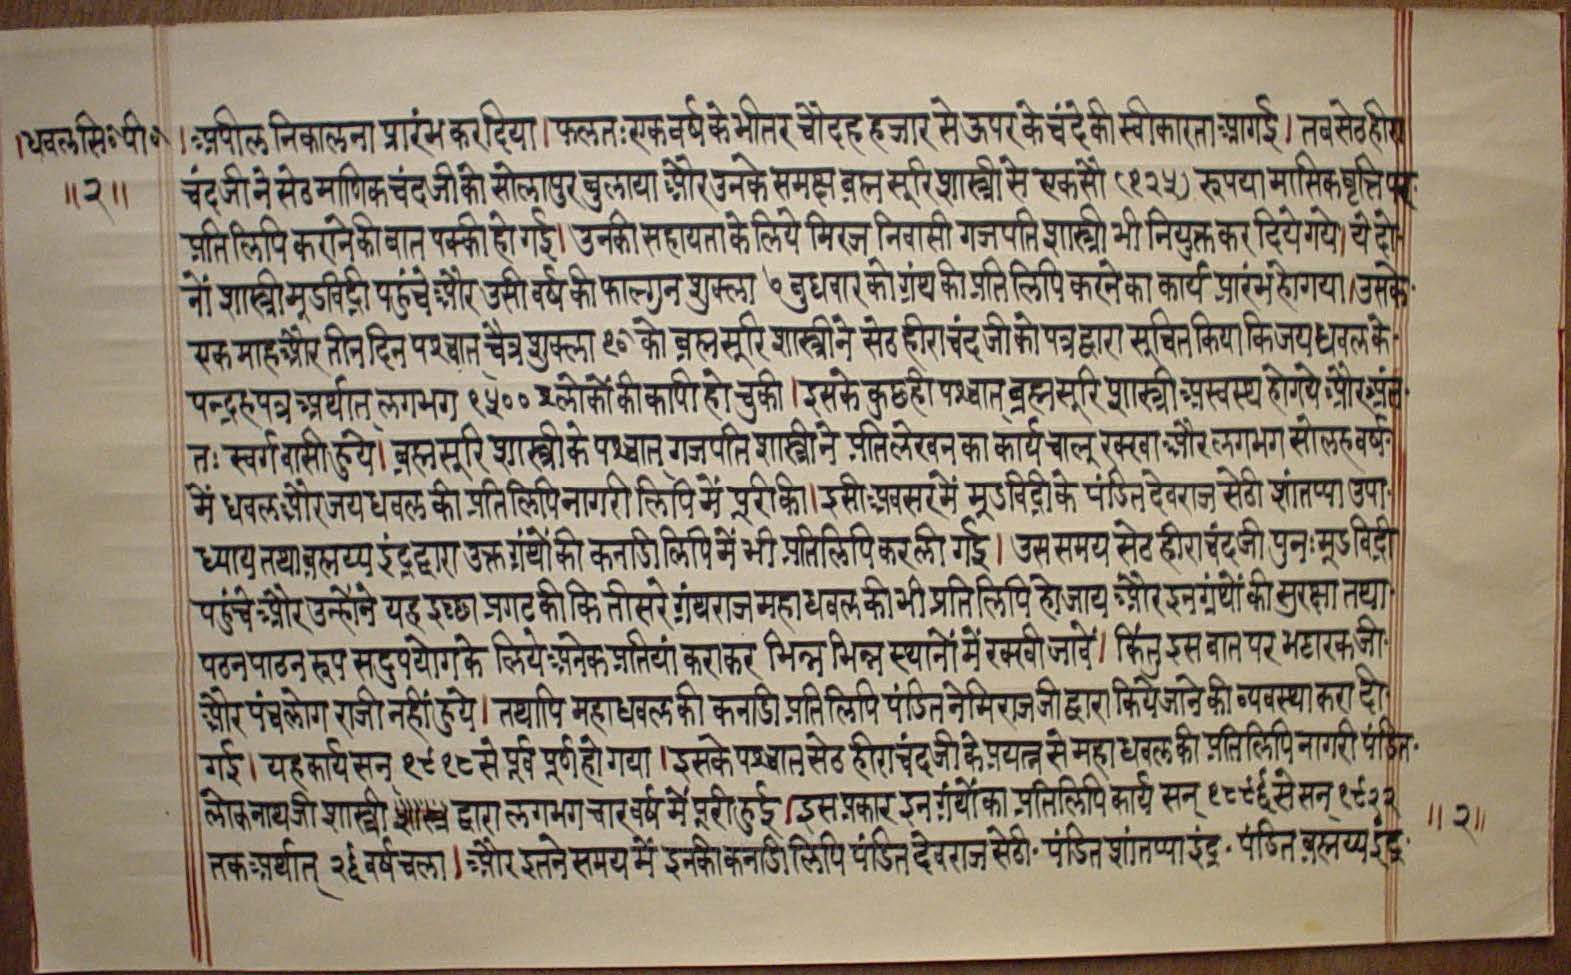 ।धवलसि॰पी॰
॥२॥
।अपील निकालना प्रारंभ कर दिया। फलतः एक वर्ष के भीतर चौदह हजार से ऊपर के चंदे की स्वीकारता आगई। तब सेठ हीरा
चंदजी ने सेठ माणिकचंदजी को सोलापुर बुलाया और उनके समक्ष ब्रह्मसूरि शास्त्री से एकसौ (१२५) रुपया मासिक वृत्ति पर
प्रतिलिपि कराने की बात पक्की हो गई। उनकी सहायता के लिये मिरज निवासी गजपति शास्त्री भी नियुक्त कर दिये गये। ये दो
नों शास्त्री मूडविद्री पहुंचे और उसी वर्ष की फाल्गुन शुक्ला ७ बुधवार को ग्रंथ की प्रतिलिपि करने का कार्य प्रारंभ हो गया। उसके
एक माह और तीन दिन पश्चात् चैत्र शुक्ला १० को ब्रह्मसूरि शास्त्री ने सेठ हीराचंदजी को पत्र द्वारा सूचित किया कि जयधवल के
पन्द्रह पत्र अर्थात् लगभग १५०० श्लोकों की कापी हो चुकी। इसके कुछ ही पश्चात् ब्रह्मसूरि शास्त्री अस्वस्थ हो गये और अंत
तः स्वर्गवासी हुये। ब्रह्मसूरि शास्त्री के पश्चात् गजपति शास्त्री ने प्रतिलेखन का कार्य चालू रक्खा और लगभग सोलह वर्ष
में धवल और जयधवल की प्रतिलिपि नागरी लिपि में पूरी की। इसी अवसर में मूडविद्री के पंडित देवराज सेठी शांतप्पा उपा
ध्याय तथा ब्रह्मय्य इंद्र द्वारा उक्त ग्रंथों की कनाडी लिपि में भी प्रतिलिपि कर ली गई। उस समय सेठ हीराचंदजी पुनः मूडविद्री
पहुंचे और उन्होंने यह इच्छा प्रगट की कि तीसरे ग्रंथराज महाधवल की भी प्रतिलिपि हो जाय और इन ग्रंथों की सुरक्षा तथा
पठन पाठन रूप सदुपयोग के लिये अनेक प्रतियां कराकर भिन्न भिन्न स्थानों में रक्खी जावें। किंतु इस बात पर भट्टारकजी
और पंचलोग राजी नहीं हुये। तथापि महाधवल की कनाडी प्रतिलिपि पंडित नेमिराजजी द्वारा किये जाने की व्यवस्था करा दी
गई। यह कार्य सन् १९१८ से पूर्व पूर्ण हो गया। इसके पश्चात् सेठ हीराचंदजी के प्रयत्न से महाधवल की प्रतिलिपि नागरी पंडित
लोकनाथजी शास्त्री द्वारा लगभग चार वर्ष में पूरी हुई। इस प्रकार इन ग्रंथों का प्रतिलिपि कार्य सन् १८९६ से सन् १९२२
तक अर्थात् २६ वर्ष चला। और इतने समय में इनकी कनाडी लिपि पंडित देवराज सेठी· पंडित शांतप्पा इंद्र· पंडित ब्रह्मय्य इंद्र·
॥२॥